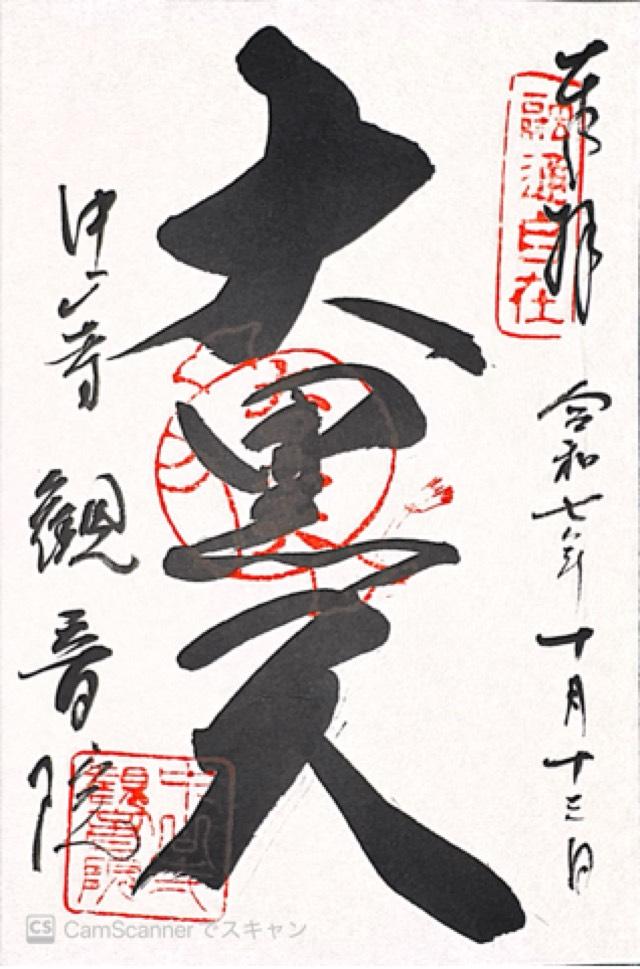 奉拝
融通自在
令和七年十月十三日
大黒天
中山寺
観音院
中山寺
観音院
CS CamScanner でスキャン